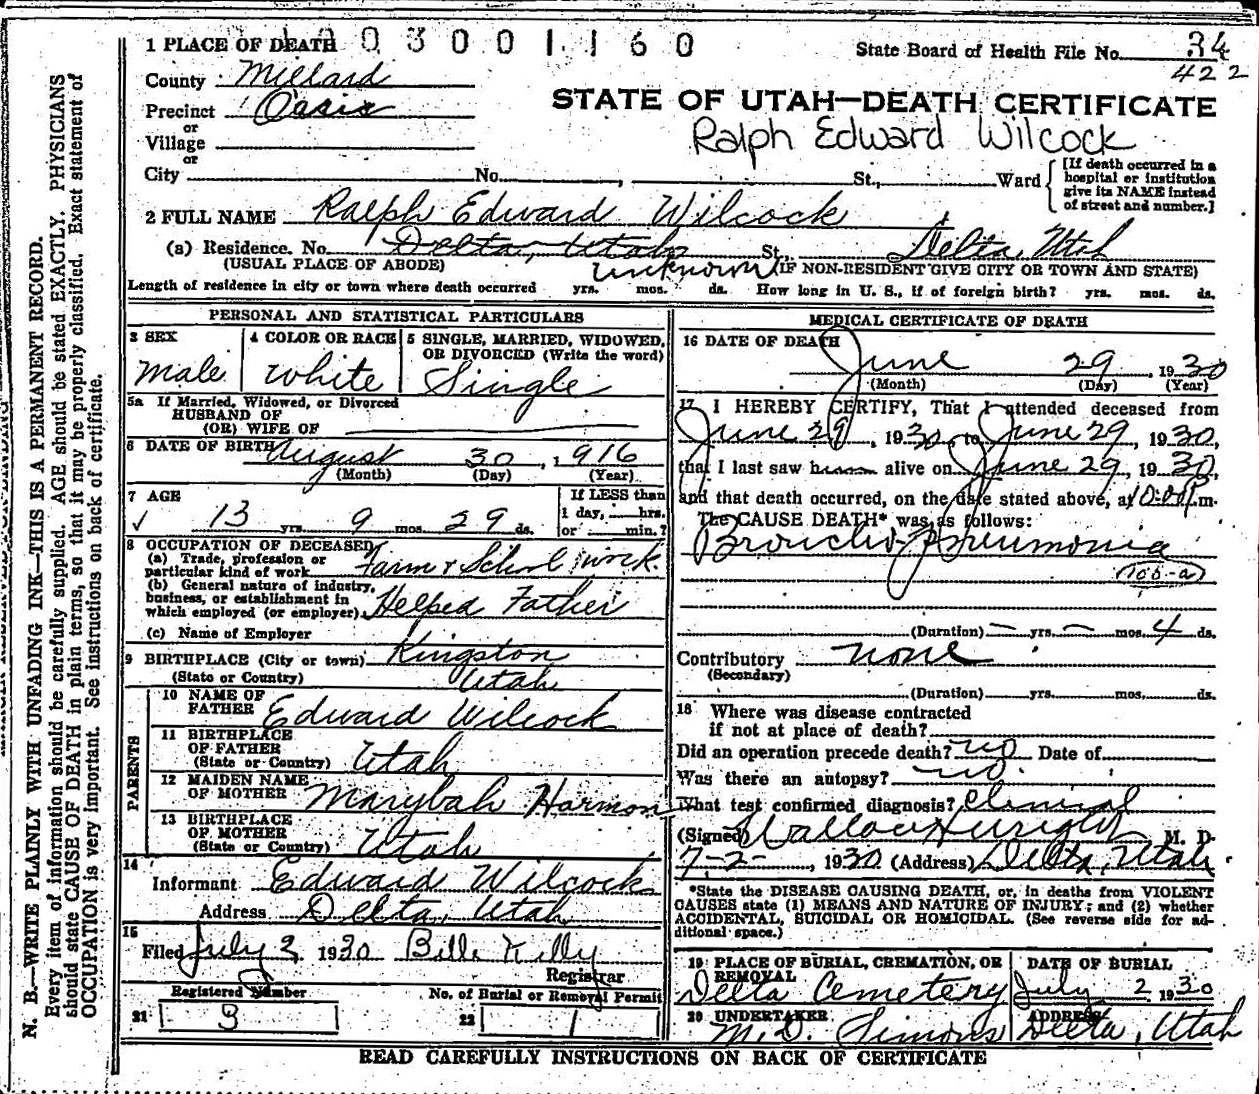 1 PLACE OF DEATH 1 0 0 3 0 0 1 1 6 0 State Board of Health File No. 34
County Millard 422
Precinct Oasis STATE OF UTAH—DEATH CERTIFICATE
or
Village Ralph Edward Wilcock
or
City No. , St., Ward {[If death occurred in a hospital or institution give its NAME instead of street and number.]
2 FULL NAME Ralph Edward Wilcock
(a) Residence. No. Delta, Utah St., Delta, Utah
(USUAL PLACE OF ABODE) unknown (IF NON-RESIDENT GIVE CITY OR TOWN AND STATE)
Length of residence in city or town where death occurred yrs. mos. ds. How long in U. S., if of foreign birth? yrs. mos. ds.
PERSONAL AND STATISTICAL PARTICULARS
3 SEX
Male
4 COLOR OR RACE
White
5 SINGLE, MARRIED, WIDOWED,
OR DIVORCED (Write the word)
Single
5a If Married, Widowed, or Divorced
HUSBAND OF
(OR) WIFE OF
6 DATE OF BIRTH August 30, 1916
(Month) (Day) (Year)
7 AGE
✓ 13 yrs. 9 mos. 29 ds.
If LESS than
1 day, hrs.
or min.?
8 OCCUPATION OF DECEASED
(a) Trade, profession or
particular kind of work Farm & School work
(b) General nature of industry,
business, or establishment in
which employed (or employer) Helped Father
(c) Name of Employer
9 BIRTHPLACE (City or town) Kingston
(State or Country) Utah
PARENTS
10 NAME OF
FATHER Edward Wilcock
11 BIRTHPLACE
OF FATHER
(State or Country) Utah
12 MAIDEN NAME
OF MOTHER Marybah Harmon
13 BIRTHPLACE
OF MOTHER
(State or Country) Utah
14
Informant Edward Wilcock
Address Delta, Utah
15
Filed July 2 1930 Bill Kelly
Registrar
Registered Number
21 3
No. of Burial or Removal Permit
22 1
MEDICAL CERTIFICATE OF DEATH
16 DATE OF DEATH
June 29, 1930
(Month) (Day) (Year)
17 I HEREBY CERTIFY, That I attended deceased from
June 29, 1930, to June 29, 1930,
that I last saw him alive on June 29, 1930,
and that death occurred, on the date stated above, at 10:00 P m.
The CAUSE DEATH* was as follows:
Broncho-Pneumonia
(Duration) — yrs. — mos. 4 ds.
Contributory none
(Secondary)
(Duration) yrs. mos. ds.
18 Where was disease contracted
if not at place of death?
Did an operation precede death? no Date of
Was there an autopsy? no.
What test confirmed diagnosis? Clinical
(Signed) M. D.
7-2-, 1930 (Address) Delta, Utah.
*State the DISEASE CAUSING DEATH, or, in deaths from VIOLENT
CAUSES state (1) MEANS AND NATURE OF INJURY; and (2) whether
ACCIDENTAL, SUICIDAL OR HOMICIDAL. (See reverse side for ad-
ditional space.)
19 PLACE OF BURIAL, CREMATION, OR
REMOVAL
Delta Cemetery
DATE OF BURIAL
July 2 1930
20 UNDERTAKER
M. D. Simons
ADDRESS
Delta, Utah
READ CAREFULLY INSTRUCTIONS ON BACK OF CERTIFICATE
N. B.—WRITE PLAINLY WITH UNFADING INK—THIS IS A PERMANENT RECORD.
Every item of information should be carefully supplied. AGE should be stated EXACTLY. PHYSICIANS
should state CAUSE OF DEATH in plain terms, so that it may be properly classified. Exact statement of
OCCUPATION is very important. See instructions on back of certificate.